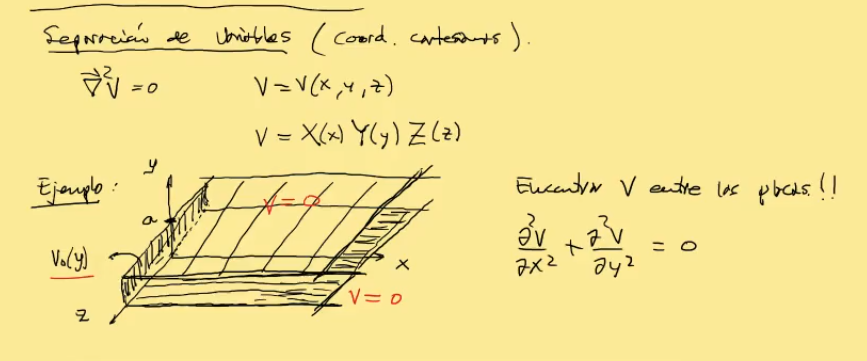 Separación de Variables (Coord. cartesianas).
∇⃗²V = 0    V = V(x, y, z)
V = X(x) Y(y) Z(z)
Ejemplo:    y    V = 0    Encontrar V entre las placas!!
a
V₀(y)    x    ∂²V/∂x² + ∂²V/∂y² = 0
z    V = 0